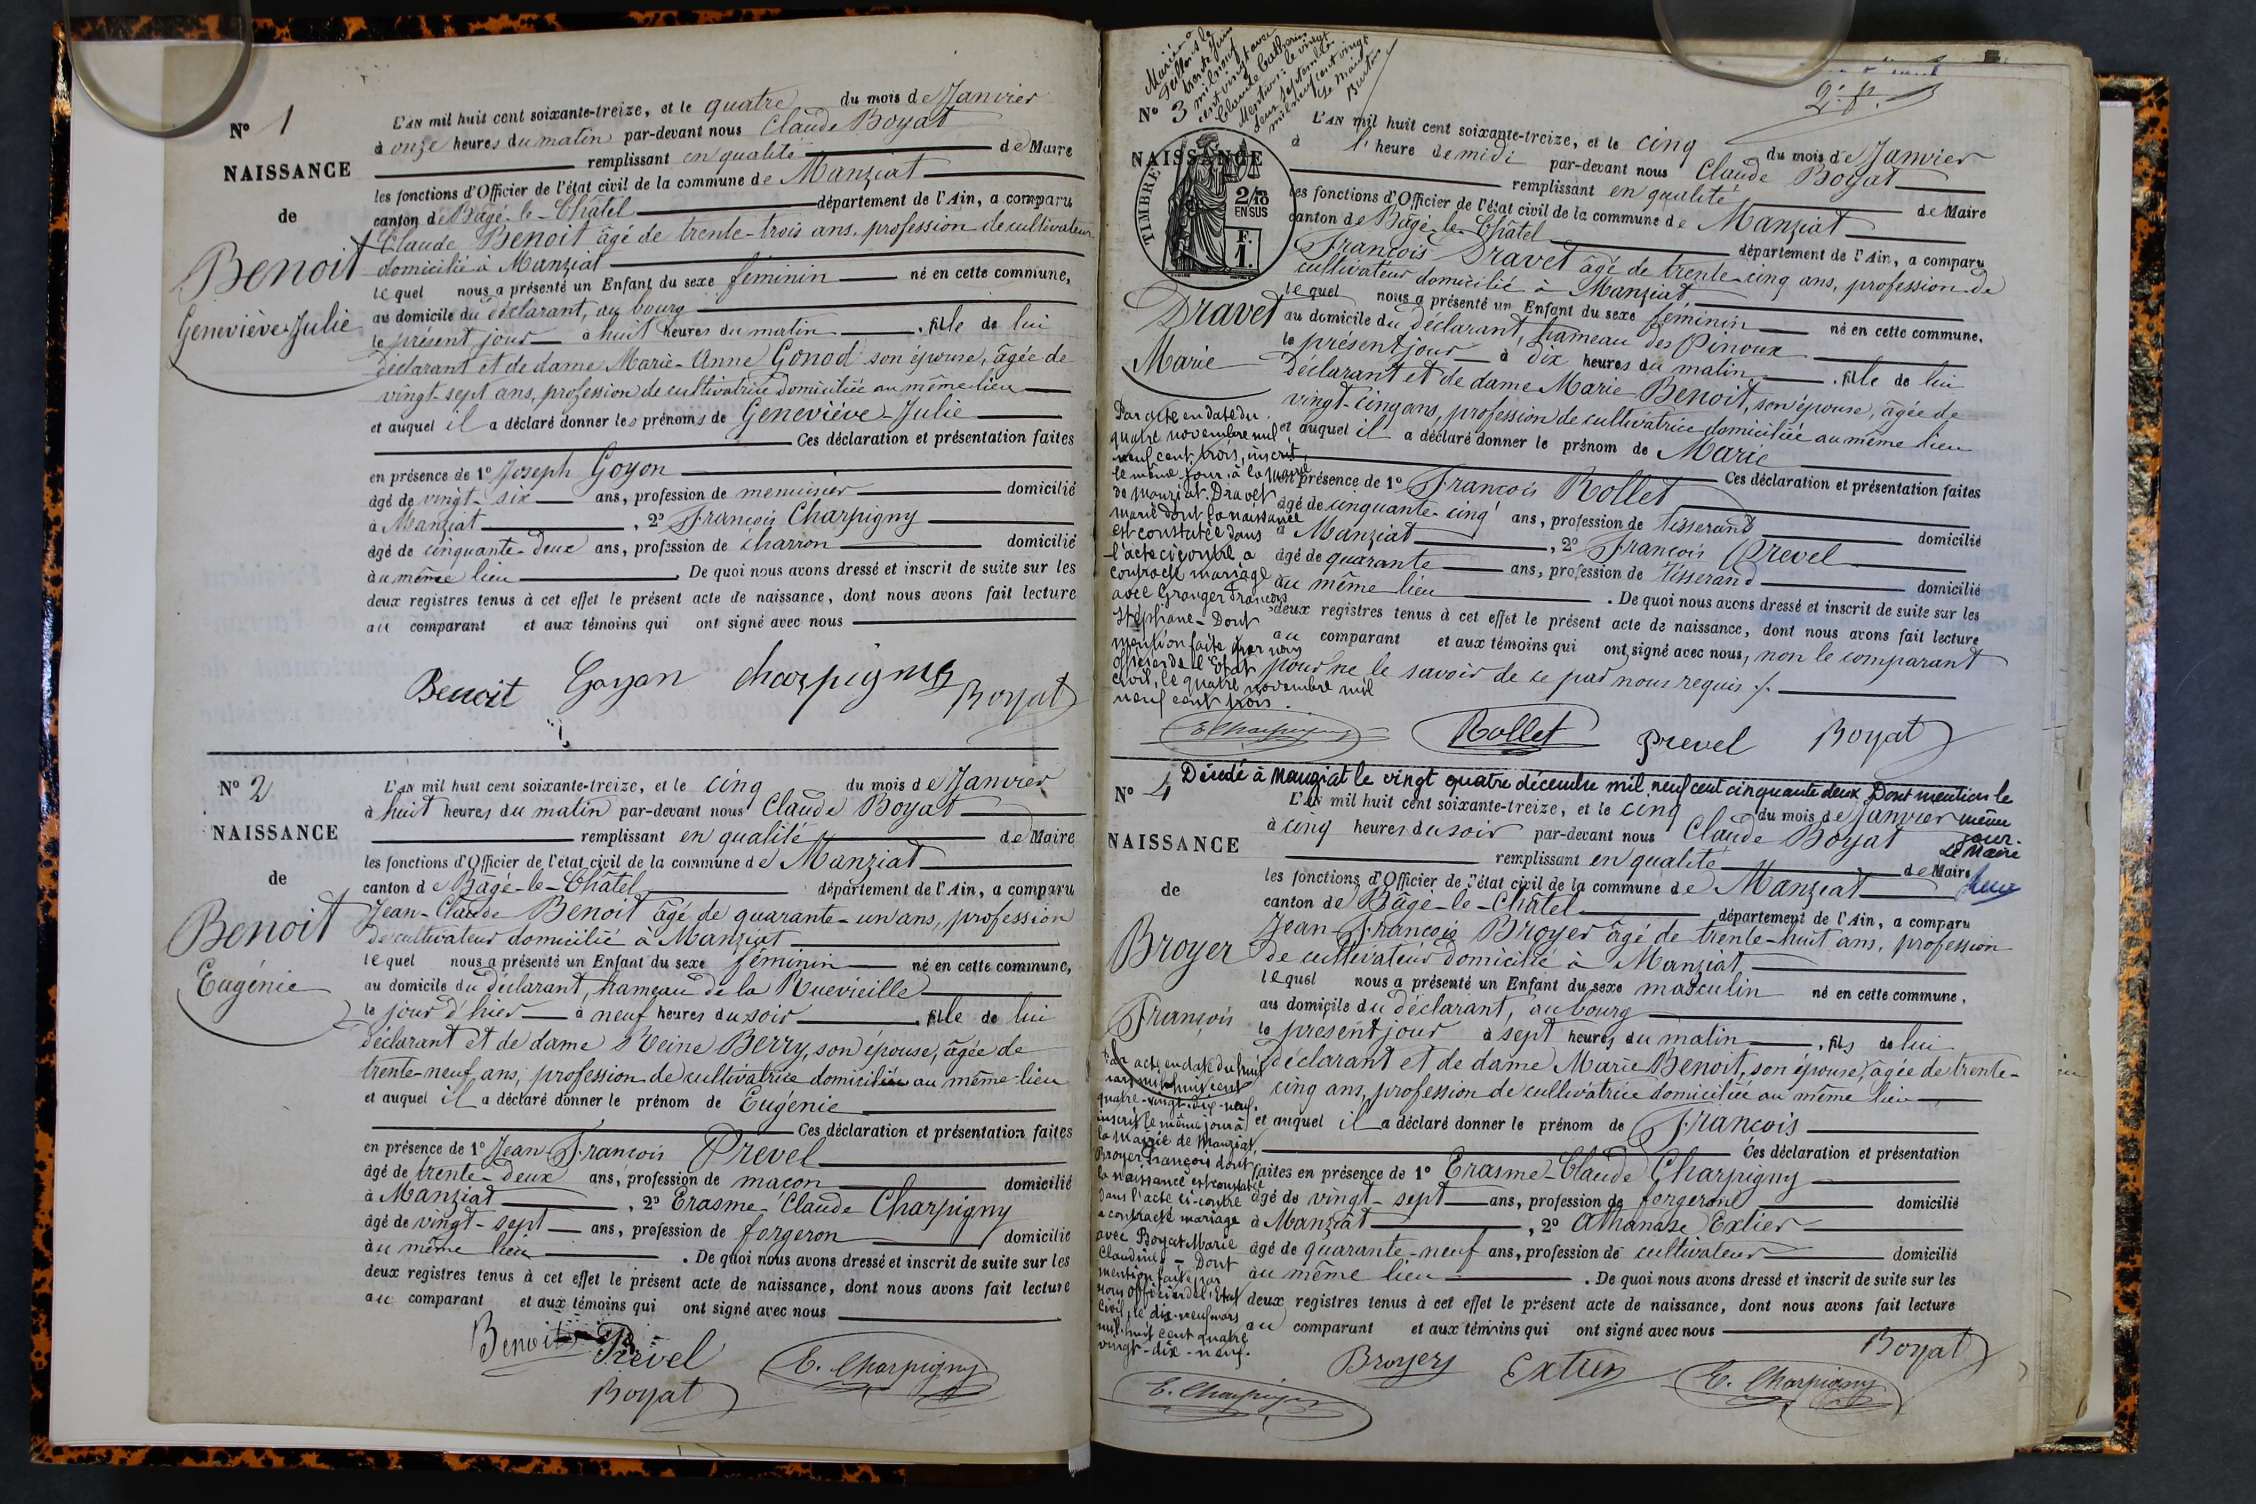 N° 1
NAISSANCE
de
Benoit
Geneviève-Julie
L'AN mil huit cent soixante-treize, et le quatre du mois de Janvier
à onze heures du matin par-devant nous Claude Boyat
remplissant en qualité de Maire
les fonctions d'Officier de l'état civil de la commune de Manziat
canton de Bâgé-le-Châtel département de l'Ain, a comparu
Claude Benoit âgé de trente-trois ans, profession de cultivateur
domicilié à Manziat
lequel nous a présenté un Enfant du sexe féminin né en cette commune,
au domicile du déclarant, au bourg
le présent jour à huit heures du matin, fille de lui
déclarant et de dame Marie-Anne Gonod son épouse, âgée de
vingt-sept ans, profession de cultivatrice domiciliée au même lieu
et auquel il a déclaré donner les prénoms de Geneviève-Julie
Ces déclaration et présentation faites
en présence de 1° Joseph Goyon
âgé de vingt-six ans, profession de menuisier domicilié
à Manziat, 2° François Charpigny
âgé de cinquante-deux ans, profession de charron domicilié
au même lieu. De quoi nous avons dressé et inscrit de suite sur les
deux registres tenus à cet effet le présent acte de naissance, dont nous avons fait lecture
au comparant et aux témoins qui ont signé avec nous
Benoit Goyon Charpigny Boyat
N° 2
NAISSANCE
de
Benoit
Eugénie
L'AN mil huit cent soixante-treize, et le cinq du mois de Janvier
à huit heures du matin par-devant nous Claude Boyat
remplissant en qualité de Maire
les fonctions d'Officier de l'état civil de la commune de Manziat
canton de Bâgé-le-Châtel département de l'Ain, a comparu
Jean-Claude Benoit âgé de quarante-un ans, profession
de cultivateur domicilié à Manziat
lequel nous a présenté un Enfant du sexe féminin né en cette commune,
au domicile du déclarant, hameau de la Ruevieille
le jour d'hier à neuf heures du soir, fille de lui
déclarant et de dame Reine Berry, son épouse, âgée de
trente-neuf ans, profession de cultivatrice domiciliée au même lieu
et auquel il a déclaré donner le prénom de Eugénie
Ces déclaration et présentation faites
en présence de 1° Jean François Prevel
âgé de trente-deux ans, profession de maçon domicilié
à Manziat, 2° Erasme-Claude Charpigny
âgé de vingt-sept ans, profession de forgeron domicilié
au même lieu. De quoi nous avons dressé et inscrit de suite sur les
deux registres tenus à cet effet le présent acte de naissance, dont nous avons fait lecture
au comparant et aux témoins qui ont signé avec nous
Benoit Prevel E. Charpigny
Boyat
Mariée à
Feillens le
trente Juin
mil neuf
cent vingt avec
Claude Catherin
le vingt
deux septembre
mil neuf cent vingt
Le Maire
N° 3
TIMBRE
2/10
EN SUS
F.
1.
NAISSANCE
de
Dravet
Marie
L'AN mil huit cent soixante-treize, et le cinq du mois de Janvier
à l'heure de midi par-devant nous Claude Boyat
remplissant en qualité de Maire
les fonctions d'Officier de l'état civil de la commune de Manziat
canton de Bâgé-le-Châtel département de l'Ain, a comparu
François Dravet âgé de trente-cinq ans, profession de
cultivateur domicilié à Manziat
lequel nous a présenté un Enfant du sexe féminin né en cette commune,
au domicile du déclarant, hameau des Pinoux
le présent jour à dix heures du matin, fille de lui
déclarant et de dame Marie Benoit, son épouse, âgée de
vingt-cinq ans, profession de cultivatrice domiciliée au même lieu
et auquel il a déclaré donner le prénom de Marie
Ces déclaration et présentation faites
en présence de 1° François Rollet
âgé de cinquante-cinq ans, profession de tisserand domicilié
à Manziat, 2° François Prevel
âgé de quarante ans, profession de tisserand domicilié
au même lieu. De quoi nous avons dressé et inscrit de suite sur les
deux registres tenus à cet effet le présent acte de naissance, dont nous avons fait lecture
au comparant et aux témoins qui ont signé avec nous, non le comparant
pour ne le savoir de ce par nous requis /.
Par acte en date du
quatre novembre mil
neuf cent trois, inscrit
le même jour à la mairie
de Manziat, Dravet
Marie dont la naissance
est constatée dans
l'acte ci-contre a
contracté mariage
avec Granger François
Stéphane - Dont
mention faite par nous
officier de l'Etat
civil, le quatre novembre mil
neuf cent trois.
E. Charpigny Rollet prevel Boyat
Décédé à Manziat le vingt quatre décembre mil neuf cent cinquante deux. Dont mention le
même
jour.
Le Maire
N° 4
NAISSANCE
de
Broyer
François
L'AN mil huit cent soixante-treize, et le cinq du mois de Janvier
à cinq heures du soir par-devant nous Claude Boyat
remplissant en qualité de Maire
les fonctions d'Officier de l'état civil de la commune de Manziat
canton de Bâgé-le-Châtel département de l'Ain, a comparu
Jean-François Broyer âgé de trente-huit ans, profession
de cultivateur domicilié à Manziat
lequel nous a présenté un Enfant du sexe masculin né en cette commune,
au domicile du déclarant, au bourg
le présent jour à sept heures du matin, fils de lui
déclarant et de dame Marie Benoit, son épouse, âgée de trente-
cinq ans, profession de cultivatrice domiciliée au même lieu
et auquel il a déclaré donner le prénom de François
Ces déclaration et présentation
faites en présence de 1° Erasme-Claude Charpigny
âgé de vingt-sept ans, profession de forgeron domicilié
à Manziat, 2° Athanase Extier
âgé de quarante-neuf ans, profession de cultivateur domicilié
au même lieu. De quoi nous avons dressé et inscrit de suite sur les
deux registres tenus à cet effet le présent acte de naissance, dont nous avons fait lecture
au comparant et aux témoins qui ont signé avec nous
Par acte en date du huit
mars mil huit cent
quatre-vingt-dix-neuf,
inscrit le même jour à
la Mairie de Manziat,
Broyer François dont
la naissance est constatée
dans l'acte ci-contre
a contracté mariage
avec Boyat Marie
Claudine - Dont
mention faite par
nous officier de l'Etat
civil, le dix-neuf mars
mil huit cent quatre
vingt-dix-neuf.
Boyat
Broyer Extier E. Charpigny
E. Charpigny